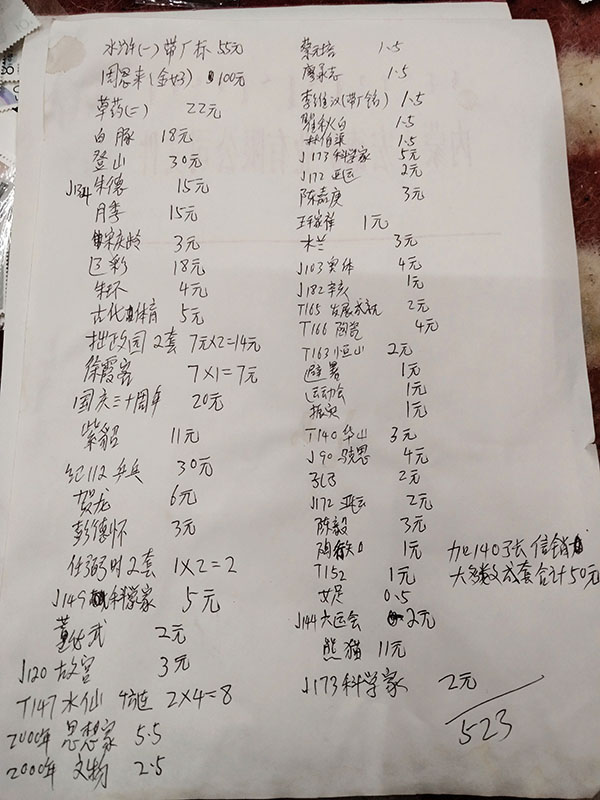 水浒(一)带厂标 55元
周恩来(金好) 100元
草药(二) 22元
白豚 18元
登山 30元
J134 朱德 15元
月季 15元
宋庆龄 3元
区彩 18元
朱环 4元
古代体育 5元
拙政园2套 7元×2=14元
徐霞客 7×1=7元
国庆三十周年 20元
紫貂 11元
纪112乒乓 30元
贺龙 6元
彭德怀 3元
任弼时2套 1×2=2
J149科学家 5元
董必武 2元
J120故宫 3元
T147水仙 4方连 2×4=8
2000年 思想家 5.5
2000年 文物 2.5
蔡元培 1.5
廖承志 1.5
李维汉(带厂铭) 1.5
瞿秋白 1.5
林伯渠 1.5
J173科学家 5元
J172亚运 2元
陈嘉庚 3元
王稼祥 1元
木兰 3元
J103奥体 4元
J182辛亥 1元
T165发展成就 2元
T166陶瓷 4元
T163恒山 2元
避暑 1元
运动会 1元
1元
T140华山 3元
J90马克思 4元
2元
J172亚运 2元
陈毅 3元
陶行知 1元
T152 1元
女足 0.5
J144六运会 2元
熊猫 11元
J173科学家 2元
523
加140多张信销
大多数成套合计50元